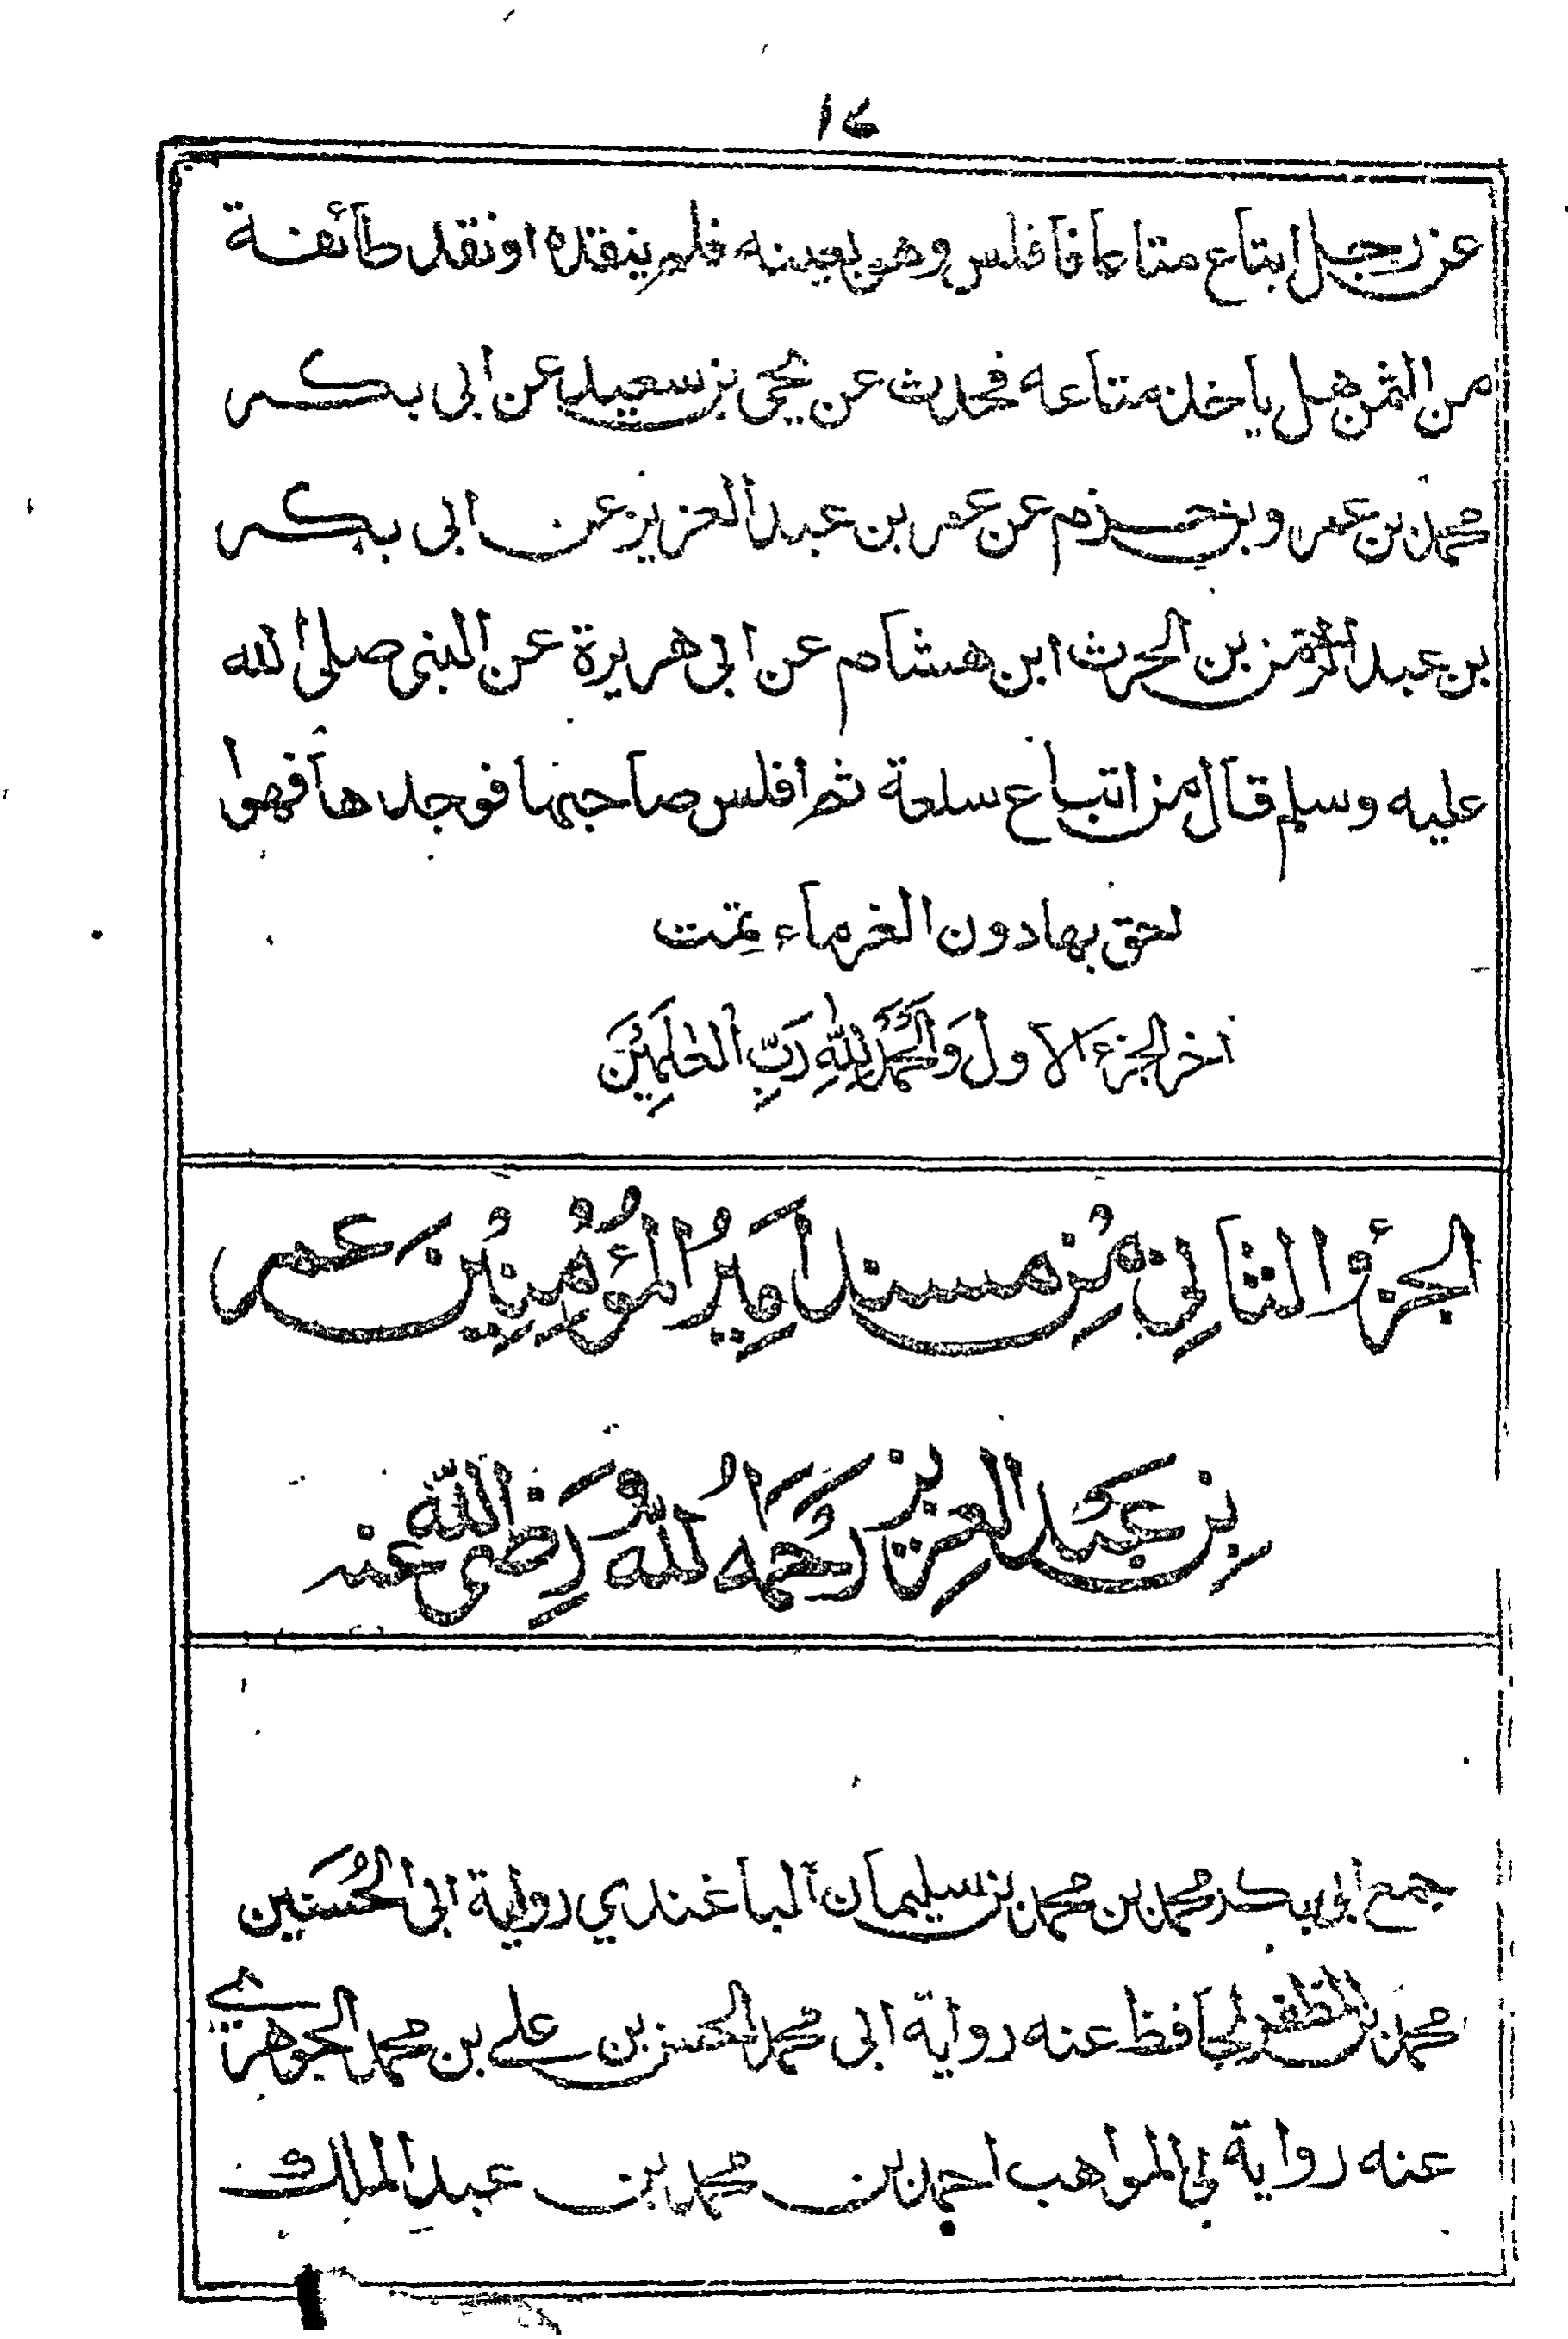 ١٤
عن رجل ابتاع متاعا فافلس وهو بعينه فلم ينقده او نقد طائفة
من الثمن هل ياخذ متاعه فحدث عن يحيى بن سعيد عن ابى بكر
محمد بن عمر وبن حزم عن عمر بن عبد العزيز عن ابى بكر
بن عبد الرحمن بن الحرث ابن هشام عن ابى هريرة عن النبى صلى الله
عليه وسلم قال من اتباع سلعة ثم افلس صاحبها فوجدها فهوا
لحق بها دون الغرماء تمت
اخر الجزء الاول وَالْحَمْدُ لِلّٰهِ رَبِّ الْعٰلَمِيْنَ
الجزؤ الثانِي مِنْ مسند اَمِيْرُ الْمُؤْمِنِيْنَ عمر
بِن عَبْد العزِيز رحمه الله ورَضى الله عنه
جمع ابى بكر محمد بن محمد بن سليمان الباغندي رواية ابى الحُسَنين
محمد بن المظفر الحافظ عنه رواية ابى محمد الحسن بن على بن محمد الجوهرى
عنه رواية لى المواهب احمد بن محمد بن عبد الملك